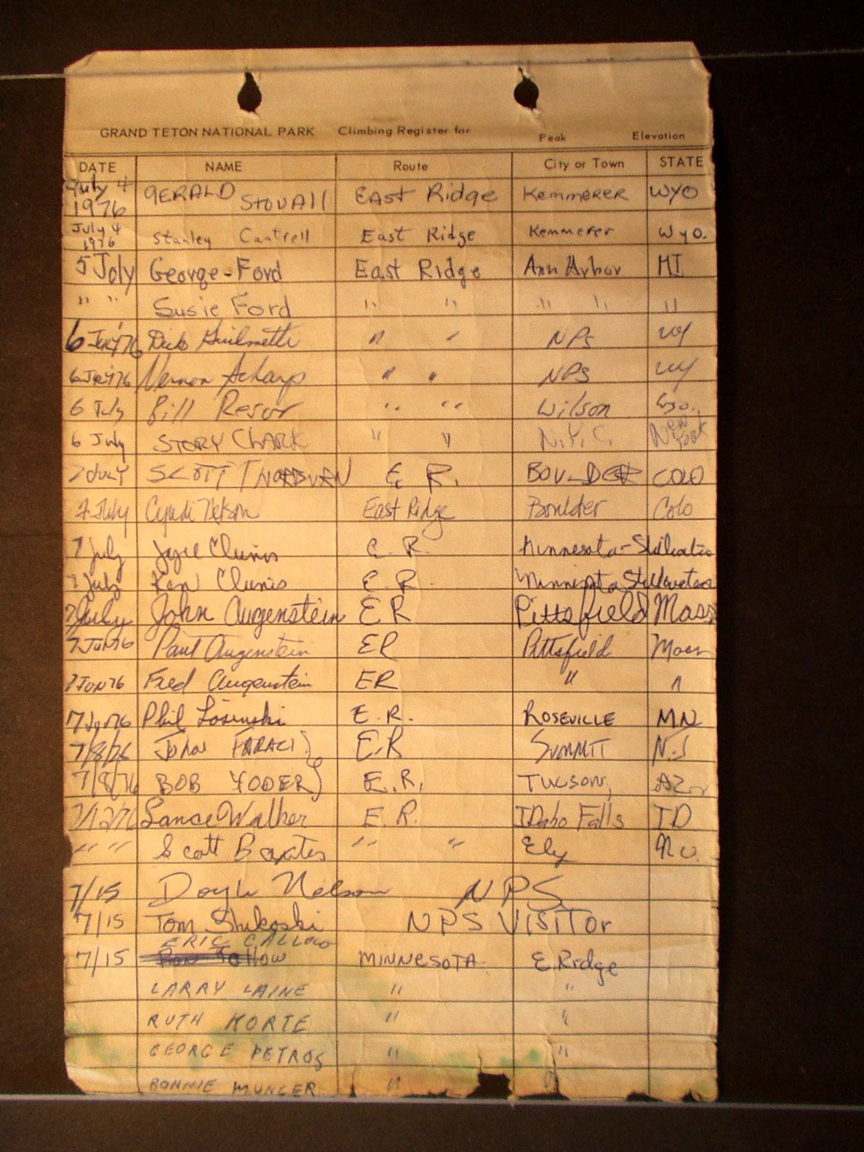 GRAND TETON NATIONAL PARK Climbing Register for Peak Elevation
DATE NAME Route City or Town STATE
July 4 1976 GERALD Stovall East Ridge Kemmerer WYO
July 4 1976 Stanley Cantrell East Ridge Kemmerer Wyo.
5 July George-Ford East Ridge Ann Arbor MI
" " Susie Ford " " " " "
6 July 76 Dick " " NPS WY
6 July 76 Vernon " " NPS WY
6 July Bill Resor " " Wilson Wyo.
6 July STORY CLARK " " N.Y.C. New York
7 JULY SCOTT E. R. BOULDER COLO
7 July Cyndi Nelson East Ridge Boulder Colo
7 July Clunis E.R. Minnesota-Stillwater
7 July Ken Clunis E.R. Minnesota Stillwater
7 July John Augenstein ER Pittsfield Mass
7 Paul Augenstein ER Pittsfield Mass
7 Fred Augenstein ER " "
7 Phil Losinski E.R. ROSEVILLE MN
7/8/76 John FARACI } E.R SUMMIT N.J
7/8/76 BOB YODER } E.R. TUCSON,
7/12/76 Lance Walker E.R. IDaho Falls ID
" " Scott " " Ely
7/15 Doyle Nelson NPS
7/15 Tom NPS VISITOR
ERIC CALLOW
7/15 MINNESOTA E. Ridge
LARRY LAINE " "
RUTH KORTE " "
GEORGE PETROS " "
BONNIE MUNGER " "